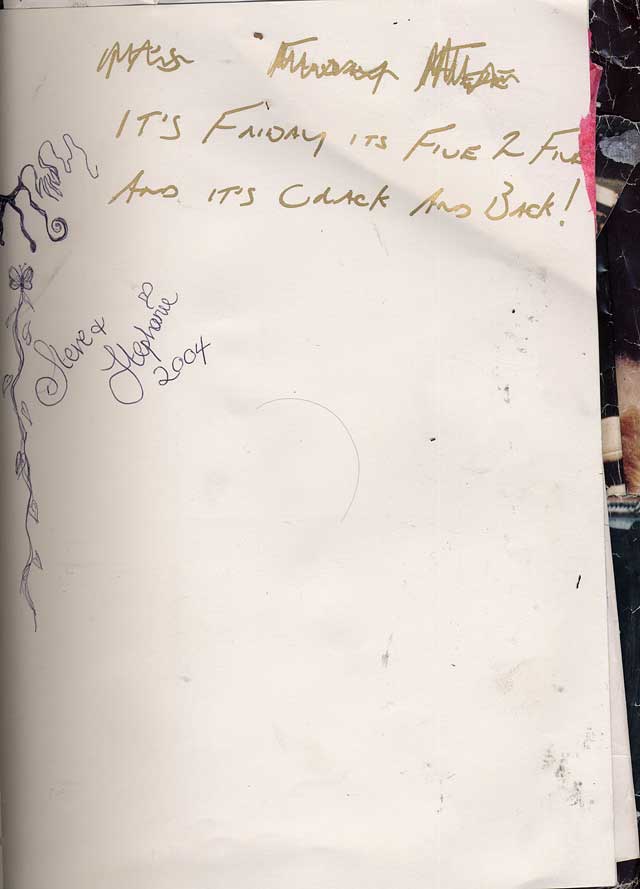 IT'S FRIDAY ITS FIVE 2 FIVE
AND IT'S CRACK AND BACK!
Steve &
Stephanie
2004